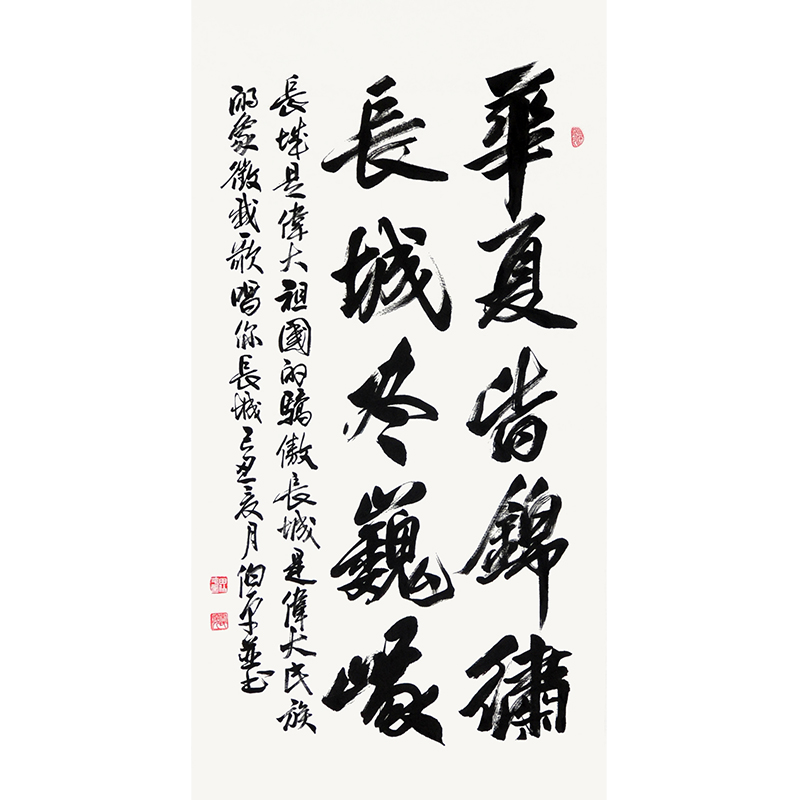 華夏皆錦繡
長城尽巍峨
長城是偉大祖國的驕傲長城是偉大民族
的象徵我歌唱你長城己丑夏月伯平並书